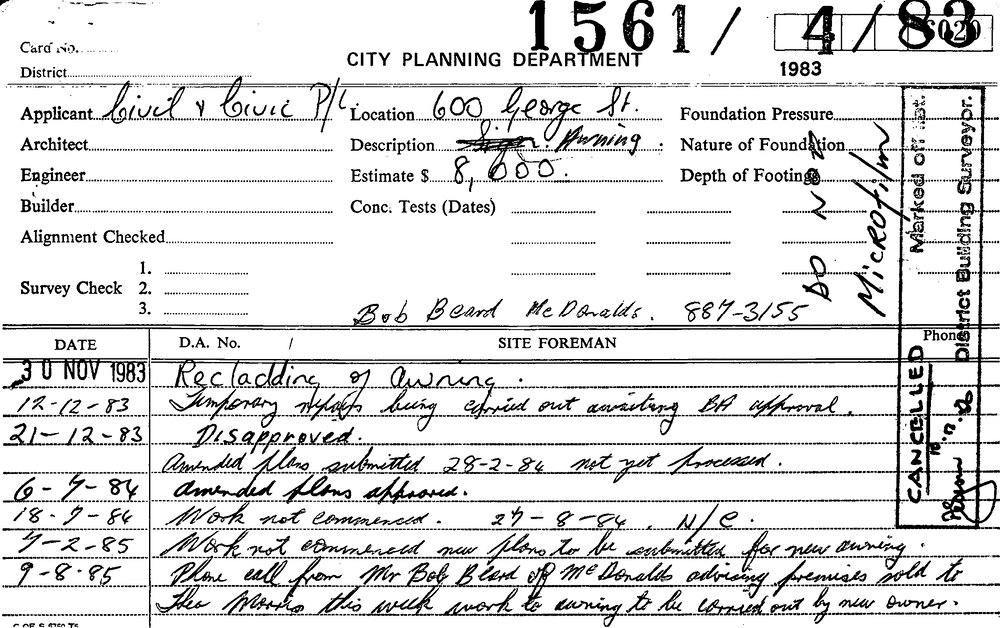 1561 / 4 / 83
6020
Card No.
CITY PLANNING DEPARTMENT
1983
District
Applicant Civil & Civic P/L. Location 600 George St. Foundation Pressure
Architect Description Sign. Awning. Nature of Foundation
Engineer Estimate $ 8,000. Depth of Footings
Builder Conc. Tests (Dates)
Alignment Checked
1.
Survey Check 2.
3.
Bob Beard McDonalds. 887-3155
DO NOT
MICROFILM
CANCELLED Marked off list.
District Building Surveyor.
DATE D.A. No. / SITE FOREMAN Phone
30 NOV 1983 Recladding of awning.
12-12-83 Temporary repairs being carried out awaiting BA approval.
21-12-83 Disapproved.
Amended plans submitted 28-2-84 not yet processed.
6-7-84 Amended plans approved.
18-7-84 Work not commenced. 27-8-84. N/C.
7-2-85 Work not commenced new plans to be submitted for new awning.
9-8-85 Phone call from Mr Bob Beard of McDonalds advising premises sold to
Theo Morris this week work to awning to be carried out by new owner.